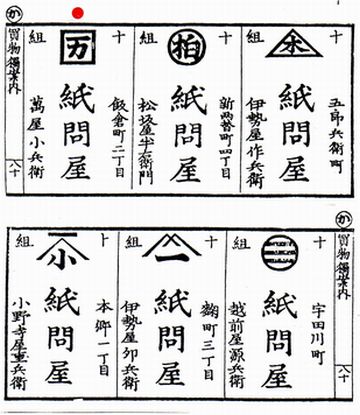 十組
五郎兵衛町
紙問屋
伊勢屋作兵衛
十組
新両替町四丁目
紙問屋
松坂屋半右衛門
十組
万
飯倉町二丁目
紙問屋
萬屋小兵衛
か
買物獨案内
八十
か
買物獨案内
八十
十組
三
宇田川町
紙問屋
越前屋源兵衛
十組
一
麹町三丁目
紙問屋
伊勢屋卯兵衛
十組
小
本郷一丁目
紙問屋
小野寺屋重兵衛